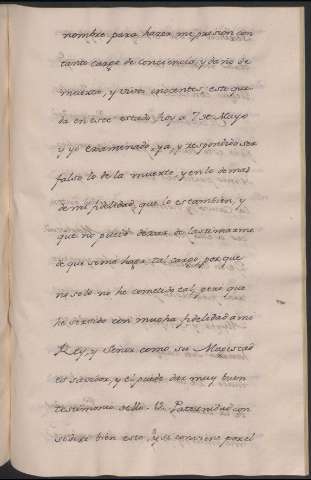 nombre para hazer me presion con
tanto cargo de conciencia, y daño de
muerto, y vivos inocentes, esto que
da en este estado hoy a 7 de Mayo
y yo examinado ya, y respondido ser
falso lo de la muerte y en lo demas
de mi fidelidad, que lo es tambien, y
que no puedo dexar de lastimarme
de que se me haga tal cargo, por que
no solo no he cometido tal, pero que
he servido con mucha fidelidad a mi
Rey, y Señor como su Magestad
es savidor, y él puede dar muy buen
testimonio dello. V. Paternidad con
sidere bien esto, y si conviene por el